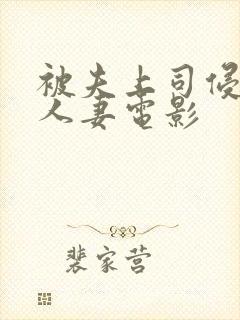 被夫上司侵
人妻电影
裴家营